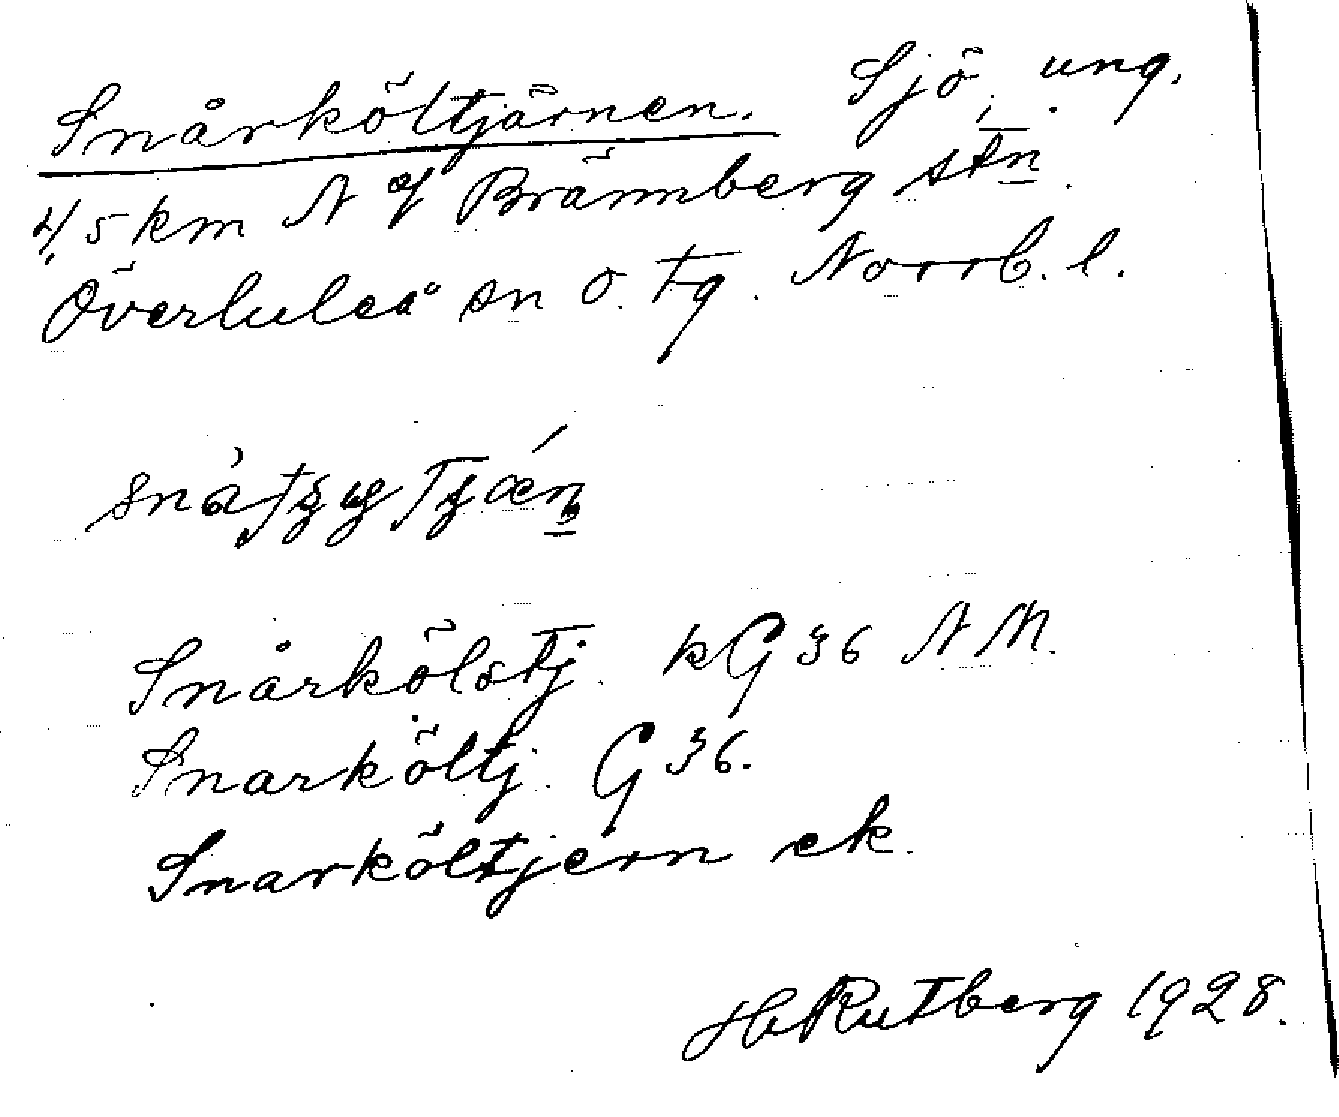 Snårköltjärnen. Sjö, ung.
4,5 km N of Brännberg stn.
Överluleå sn o. tg. Norrb. l.
Snårkölstj. kG 36 NM.
Snarköltj. G 36.
Snarköltjern ek.
H Rutberg 1928.